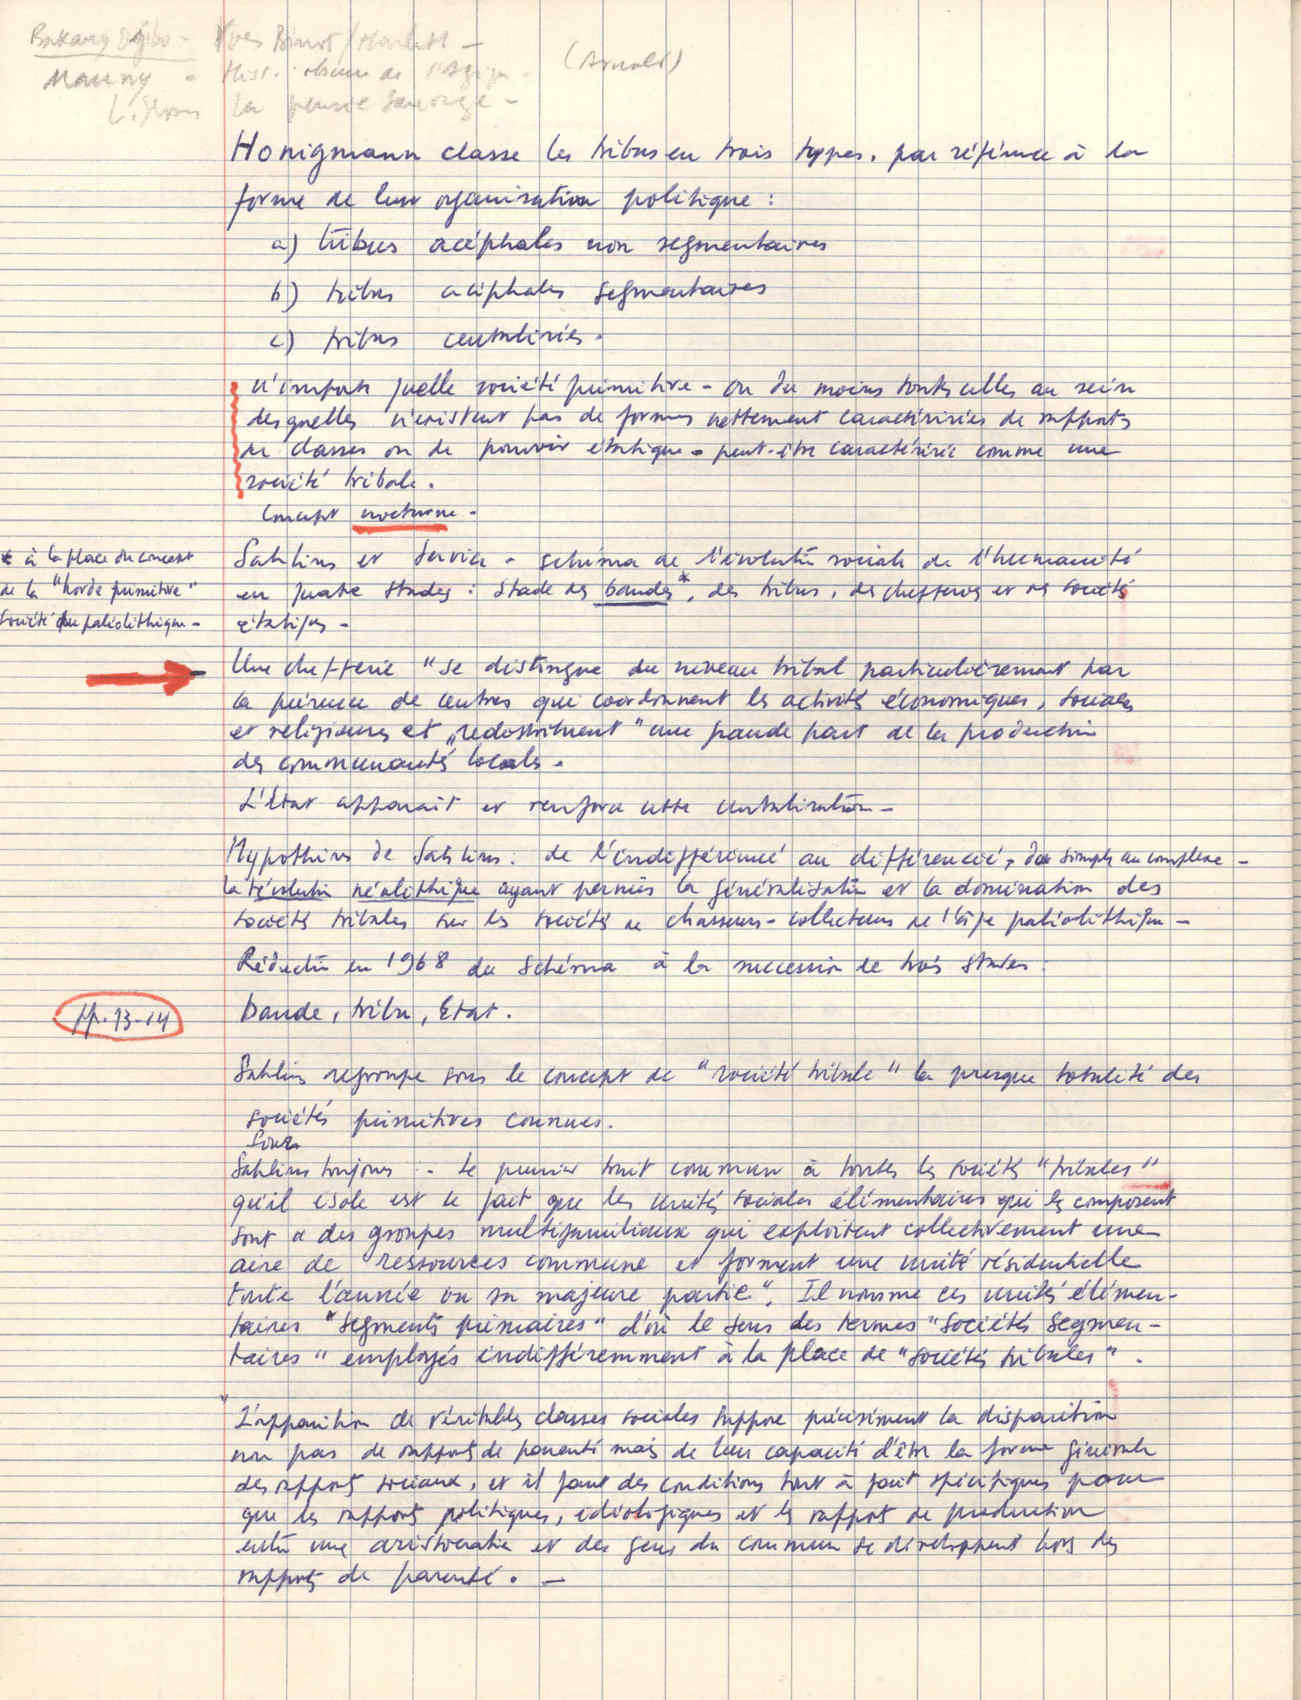 Bakary Djibo - Yves Benot / Maulett -
Mauny - Hist. obscure de l'Afriq. - (Arnold)
L. Strauss La pensée Sauvage -
Honigmann classe les tribus en trois types, par référence à la
forme de leur organisation politique :
a) tribus acéphales non segmentaires
b) tribus acéphales segmentaires
c) tribus centralisées.
n'importe quelle société primitive - ou du moins toutes celles au sein
desquelles n'existent pas de formes nettement caractérisées de rapports
de classes ou de pouvoir étatique - peut-être caractérisée comme une
société tribale.
Concept nocturne -
* à la place du concept
de la "horde primitive"
société du paléolithique -
Sahlins et Service - schéma de l'évolution sociale de l'humanité
en quatre stades : stade des bandes*, des tribus, des chefferies et des sociétés
étatiques -
Une chefferie "se distingue du niveau tribal particulièrement par
la présence de centres qui coordonnent les activités économiques, sociales
et religieuses et "redistribuent" une grande part de la production
des communautés locales.
L'Etat apparaît et renforce cette centralisation -
Hypothèse de Sahlins : de l'indifférencié au différencié, du simple au complexe -
la révolution néolithique ayant permis la généralisation et la domination des
sociétés tribales sur les sociétés de chasseurs-collecteurs de l'âge paléolithique -
Réduction en 1968 du schéma à la succession de trois stades :
pp. 13-14
bande, tribu, Etat.
Sahlins regroupe sous le concept de "société tribale" la presque totalité des
sociétés primitives connues.
Sahlins toujours : - Le premier trait commun à toutes les sociétés "tribales"
qu'il isole est le fait que les unités sociales élémentaires qui les composent
sont "des groupes multifamiliaux qui exploitent collectivement une
aire de ressources commune et forment une unité résidentielle
toute l'année ou sa majeure partie". Il nomme ces unités élémen-
taires "segments primaires" d'où le sens des termes "sociétés segmen-
taires" employés indifféremment à la place de "sociétés tribales".
"L'apparition de véritables classes sociales suppose précisément la disparition
non pas de rapports de parenté mais de leur capacité d'être la forme générale
des rapports sociaux, et il faut des conditions tout à fait spécifiques pour
que les rapports politiques, idéologiques et les rapports de production
entre une aristocratie et des gens du commun se développent hors des
rapports de parenté. -